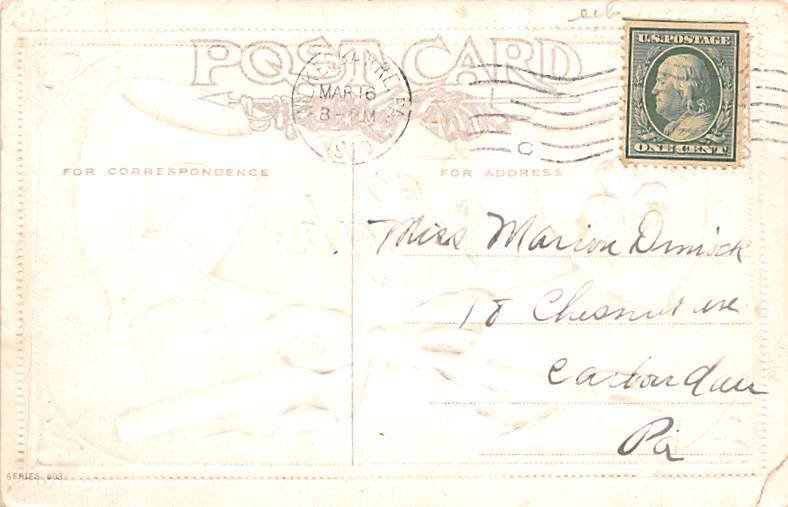 POST CARD
U.S. POSTAGE
ONE CENT
WILKES-BARRE, PA
MAR 16
8-PM
1910
C
FOR CORRESPONDENCE
FOR ADDRESS
Miss Marion Dimock
18 Chesnut ave
Carbondale
Pa
SERIES 603